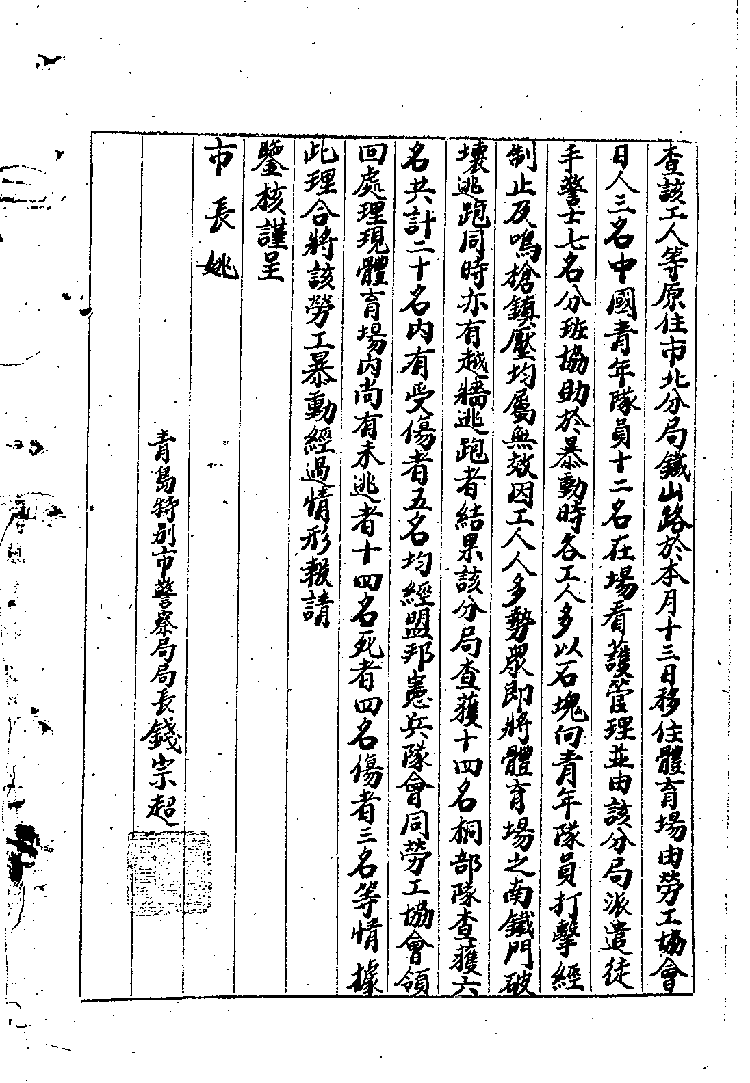 查該工人等原住市北分局鐵山路於本月十三日移住體育場由勞工協會
日人三名中國青年隊員十二名在場看護管理並由該分局派遣徒
手警士七名分班協助於暴動時各工人多以石塊向青年隊員打擊經
制止及鳴槍鎮壓均屬無效因工人人多勢眾即將體育場之南鐵門破
壞逃跑同時亦有越牆逃跑者結果該分局查獲十四名桐部隊查獲六
名共計二十名內有受傷者五名均經盟邦憲兵隊會同勞工協會領
回處理現體育場內尚有未逃者十四名死者四名傷者三名等情據
此理合將該勞工暴動經過情形報請
鑒核謹呈
市長姚
青島特別市警察局局長錢宗超